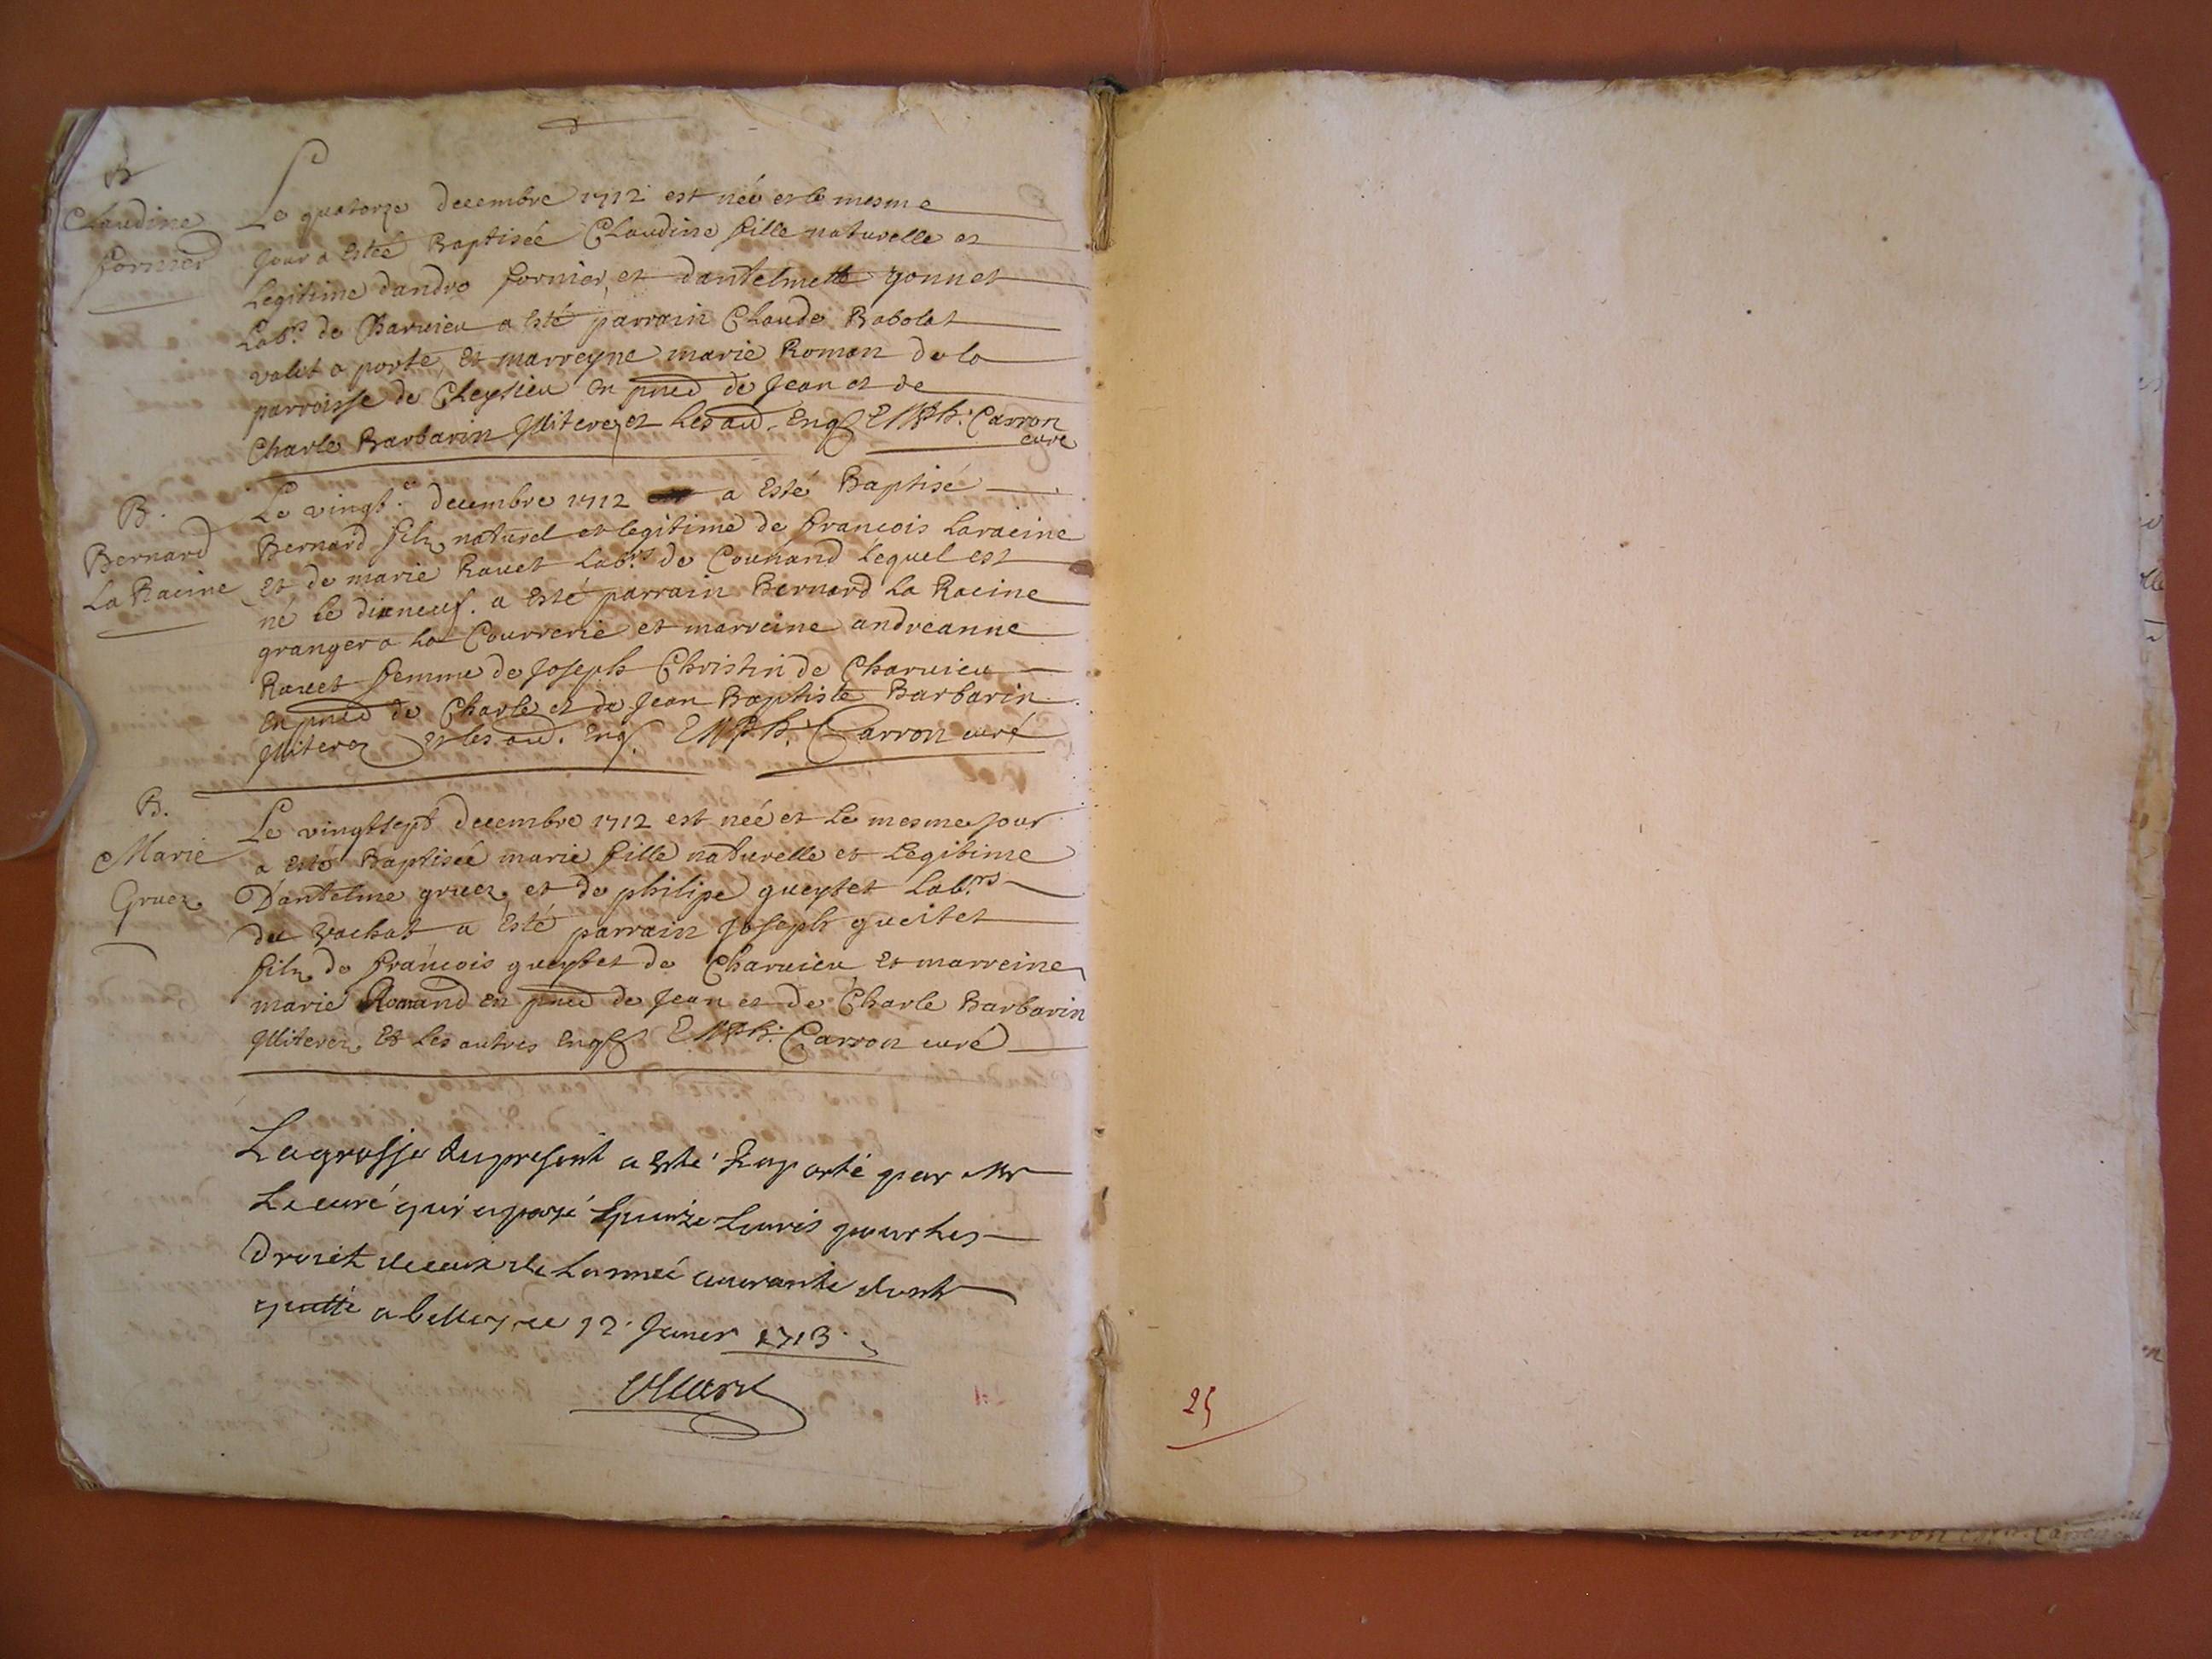 B
Claudine
fornier
Le quatorze decembre 1712 est née et le mesme
jour a esté Baptisée Claudine fille naturelle et
Legitime dandre fornier, et dantelmette yonnet
Labrs de Charvieu a esté parrain Claude Rabolat
valet a porte, et marreyne marie Roman de la
parroisse de Cheysieu en pnce de Jean et de
Charle Barbarin Illiterez et les aud. Enqs EMPh. Carron
curé
B.
Bernard
La Racine
Le vingte decembre 1712 a esté Baptisé
Bernard filz naturel et legitime de francois Laracine
et de marie Ravet Labrs de Counand lequel est
né le dixneuf. a esté parrain Bernard La Racine
granger a la Courrerie et marreine andreanne
Ravet femme de Joseph Christin de Charvieu
en pnce de Charle et de Jean Baptiste Barbarin
Illiterez et les aud. Enqs EMPh. Carron curé
B.
Marie
Gruez
Le vingtsept decembre 1712 est née et le mesme jour
a esté Baptisée marie fille naturelle et Legitime
D'antelme gruez, et de philipe gueytet Labrs
du vachat a esté parrain Joseph gueitet
filz de francois gueytet de Charvieu et marreine
marie Romand en pnce de Jean et de Charle Barbarin
Illiterez et les autres Enqs EMPh. Carron curé
La grosse du present a esté Raporté par Mr
Le curé qui a payé quinze Louis pour les
Droict de lannée courante dont
quitté a belley ce 12 Janer 1713
25